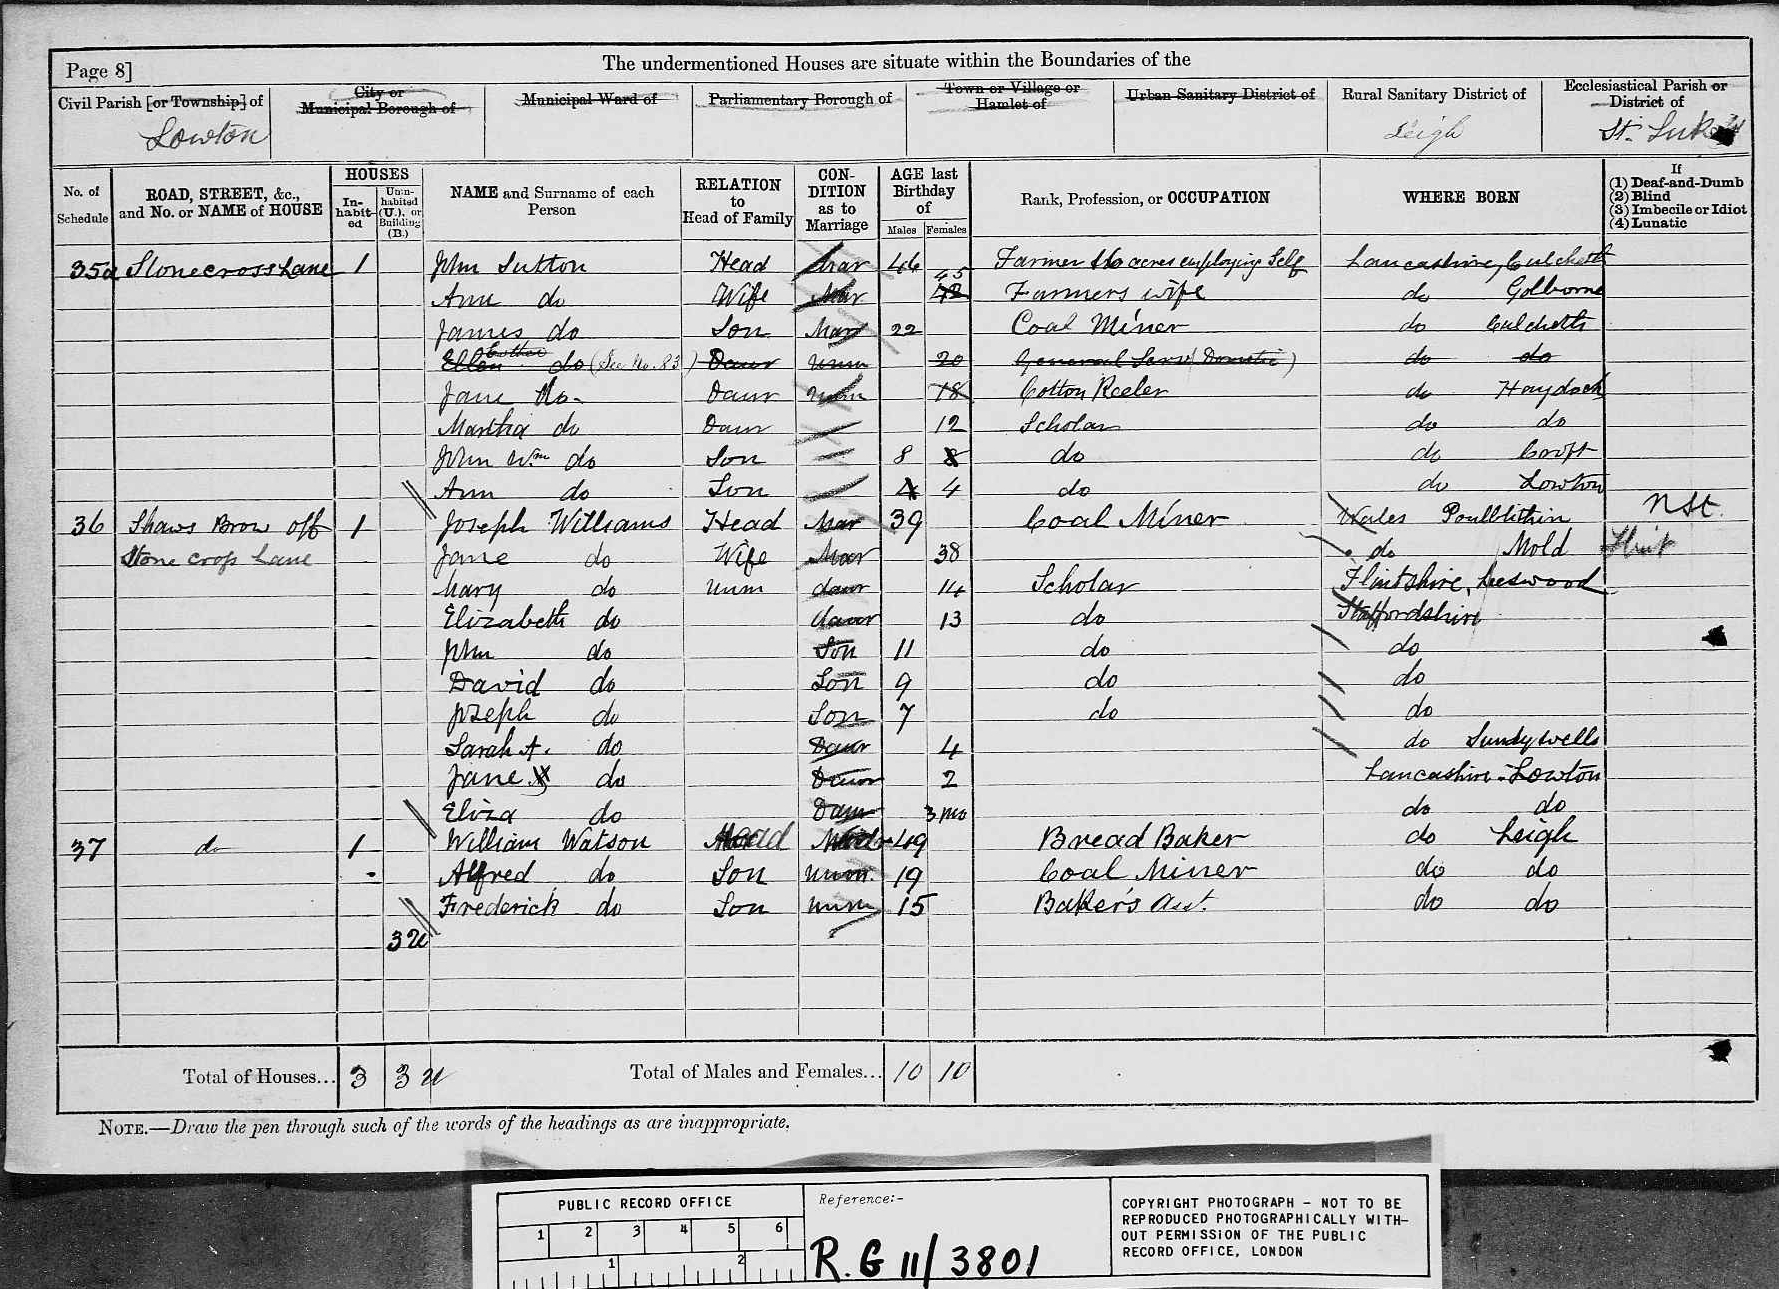 Page 8]
The undermentioned Houses are situate within the Boundaries of the
Civil Parish [or Township] of
Lowton
City or
Municipal Borough of
Municipal Ward of
Parliamentary Borough of
Town or Village or
Hamlet of
Urban Sanitary District of
Rural Sanitary District of
Leigh
Ecclesiastical Parish or
District of
St. Luke
No. of
Schedule
ROAD, STREET, &c.,
and No. or NAME of HOUSE
HOUSES
In-
habit-
ed
Unin-
habited
(U.), or
Building
(B.)
NAME and Surname of each
Person
RELATION
to
Head of Family
CON-
DITION
as to
Marriage
AGE last
Birthday
of
Males Females
Rank, Profession, or OCCUPATION
WHERE BORN
If
(1) Deaf-and-Dumb
(2) Blind
(3) Imbecile or Idiot
(4) Lunatic
35a Stonecross Lane 1 John Sutton Head Mar 46 Farmer acres employing Self Lancashire, Culcheth
Ann do Wife Mar 45 Farmers wife do Golborne
James do Son Mar 22 Coal Miner do Culcheth
Ellen Esther do (See No. 83) Daur Unm 20 General Serv (Domestic) do do
Jane do Daur Unm 18 Cotton Reeler do Haydock
Martha do Daur 12 Scholar do do
John Wm do Son 8 8 do do Croft
Ann do Son 4 4 do do Lowton
36 Shaws Brow off 1 Joseph Williams Head Mar 39 Coal Miner Wales
Stone cross Lane Jane do Wife Mar 38 do Mold Flint
Mary do unm daur 14 Scholar Flintshire, Leeswood
Elizabeth do daur 13 do Staffordshire
John do Son 11 do do
David do Son 9 do do
Joseph do Son 7 do do
Sarah A. do Daur 4 do Sundywells
Jane do Daur 2 Lancashire Lowton
Eliza do Daur 3 mo do do
37 do 1 William Watson Head 49 Bread Baker do Leigh
Alfred do Son Unm. 19 Coal Miner do do
Frederick do Son unm 15 Baker's Asst. do do
3u
Total of Houses... 3 3 u Total of Males and Females... 10 10
NOTE.—Draw the pen through such of the words of the headings as are inappropriate.
PUBLIC RECORD OFFICE
1 2 3 4 5 6
1 2
Reference:-
R.G 11/3801
COPYRIGHT PHOTOGRAPH - NOT TO BE
REPRODUCED PHOTOGRAPHICALLY WITH-
OUT PERMISSION OF THE PUBLIC
RECORD OFFICE, LONDON